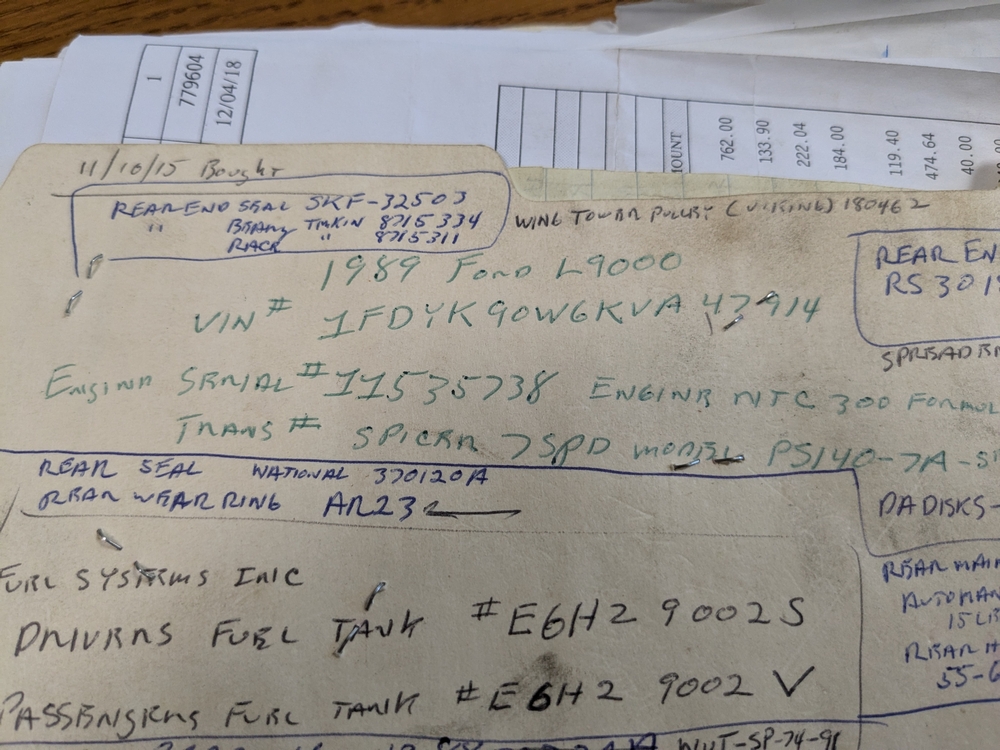 1
779604
12/04/18
MOUNT
762.00
133.90
222.04
184.00
119.40
474.64
40.00
11/10/15 Bought
REAR END SEAL SKF-32503
" BEARING TIMKIN 8715334
RACE " 8715311
WING TOWER PULLEY (VIKING) 180462
REAR EN
RS 301
1989 Ford L9000
VIN # 1FDYK90W6KVA47914
SPREADER
ENGINE SERIAL # 11535738 ENGINE NTC 300 FORMUL
TRANS # SPICER 7SPD MODEL PS140-7A-SP
REAR SEAL NATIONAL 370120A
REAR WEAR RING AR23
PADISKS-
FUEL SYSTEMS INC
REAR MAIN
AUTOMAN
15 LB
DRIVERS FUEL TANK # E6HZ 9002S
REAR H
55-6
PASSENGERS FUEL TANK # E6HZ 9002 V
WUT-SP-74-91